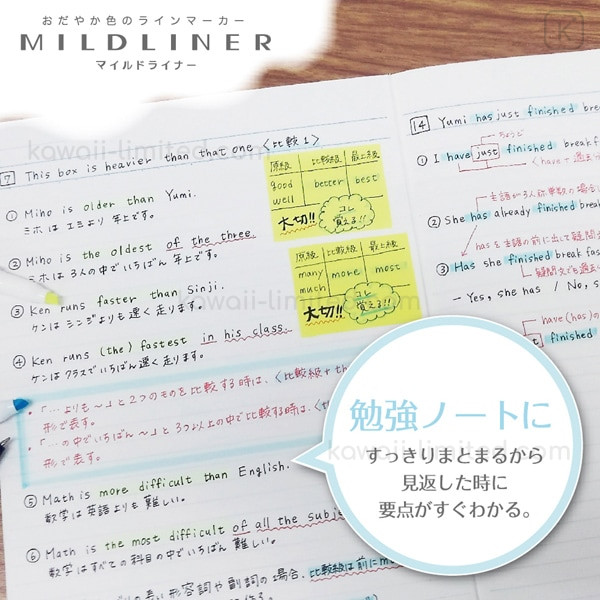 おだやか色のラインマーカー
MILDLINER
マイルドライナー
K
kawaii-limited.com
7 This box is heavier than that one 〈比較1〉
① Miho is older than Yumi.
ミホはユミより年上です。
② Miho is the oldest of the three.
ミホは3人の中でいちばん年上です。
③ Ken runs faster than Sinji.
ケンはシンジよりも速く走ります。
④ Ken runs (the) fastest in his class.
ケンはクラスでいちばん速く走ります。
・「…よりも〜」と2つのものを比較する時は、〈比較級+th
形で表す。
・「…の中でいちばん〜」と3つ以上の中で比較する時は、〈th
形で表す。
⑤ Math is more difficult than English.
数学は英語よりも難しい。
⑥ Math is the most difficult of all the subj
数学はすべての科目の中でいちばん難しい。
い形容詞や副詞の場合、比較級は前にm
原級 比較級 最上級
good better best
well
大切!! コレ覚える!!
原級 比較級 最上級
many more most
much
大切!! コレ覚える!!
kawaii-limited.com
14 Yumi has just finished brea
ちょうど
① I have just finished breakf
〈haveの過去
主語が3人称単数の場合
② She has already finished break
hasを主語の前に出して疑問文
③ Has she finished breakfas
疑問文でも過去
− Yes, she has / No, s
have(has)の
finished
勉強ノートに
すっきりまとまるから
見返した時に
要点がすぐわかる。
kawaii-limited.com